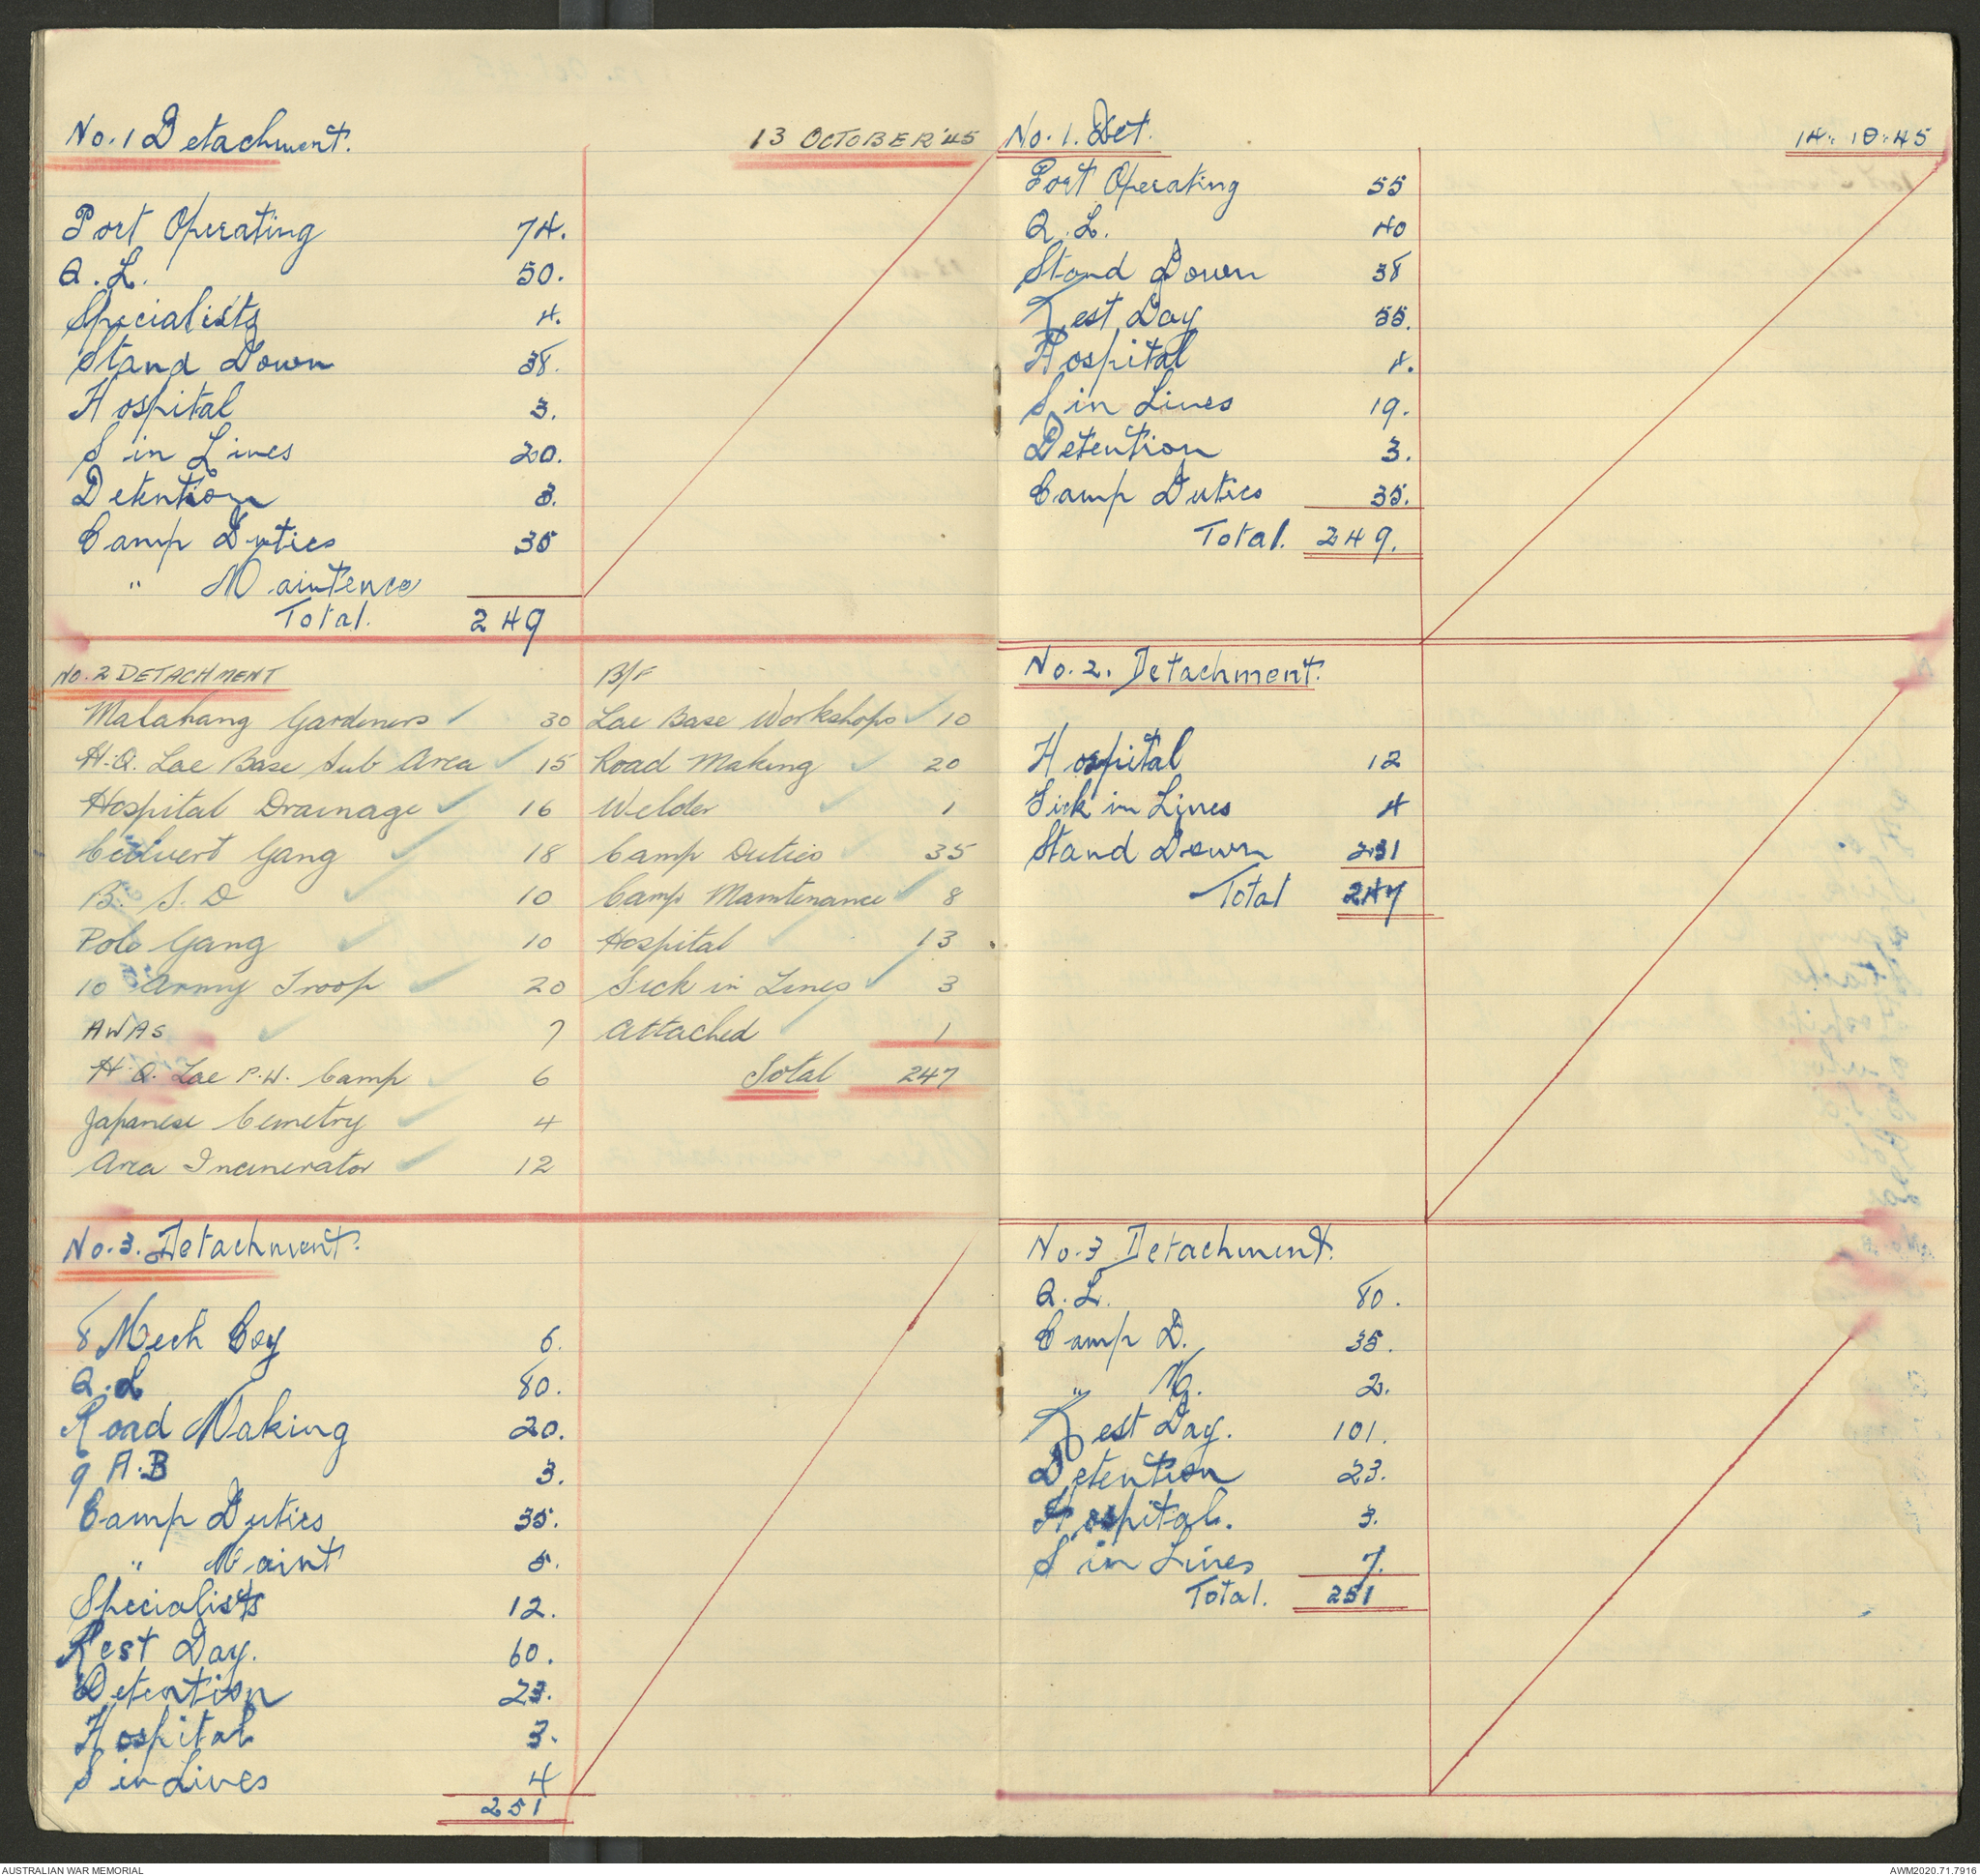 No. 1 Detachment. 13 OCTOBER '45
Port Operating 74.
Q. L. 50.
Specialists 4.
Stand Down 38.
Hospital 3.
S in Lines 20.
Detention 3.
Camp Duties 35
" Maintence
Total. 249
No. 2 DETACHMENT
Malahang Gardeners ✓ 30
H.Q. Lae Base Sub Area ✓ 15
Hospital Drainage ✓ 16
Culvert Gang ✓ 18
B. S. D ✓ 10
Polo Gang ✓ 10
10 Army Troop ✓ 20
AWAS ✓ 7
H.Q. Lae P.W. Camp ✓ 6
Japanese Cemetry ✓ 4
Area Incinerator ✓ 12
B/F
Lae Base Workshops ✓ 10
Road Making ✓ 20
Welder ✓ 1
Camp Duties ✓ 35
Camp Maintenance ✓ 8
Hospital ✓ 13
Sick in Lines ✓ 3
Attached ✓ 1
Total 247
No. 3. Detachment.
8 Mech Coy 6.
Q. L 80.
Road Making 20.
9 A.B 3.
Camp Duties 35.
" Maint 5.
Specialists 12.
Rest Day. 60.
Detention 23.
Hospital 3.
S in Lines 4
251
No. 1. Det. 14.10.45
Port Operating 55
Q. L. 40
Stand Down 38
Rest Day 55.
Hospital 4.
S in Lines 19.
Detention 3.
Camp Duties 35.
Total. 249.
No. 2. Detachment.
Hospital 12
Sick in Lines 4
Stand Down 231
Total 247
No. 3 Detachment.
Q. L. 80.
Camp D. 35.
" M. 2.
Rest Day. 101.
Detention 23.
Hospital. 3.
S in Lines 7.
Total. 251
AUSTRALIAN WAR MEMORIAL AWM2020.71.7916